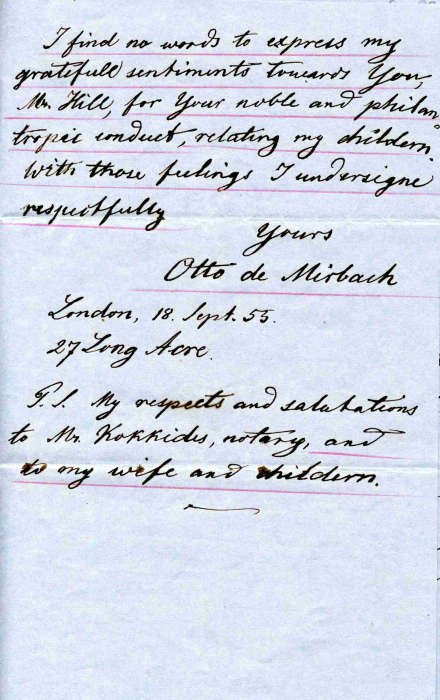 I find no words to express my
gratefull sentiments towards You,
Mr. Hill, for Your noble and philan
tropic conduct, relating my childern.
With those feelings I undersigne
respectfully
Yours
Otto de Mirbach
London, 18. Sept. 55.
27 Long Acre.
P.S. My respects and salutations
to Mr. Kokkides, notary, and
to my wife and childern.